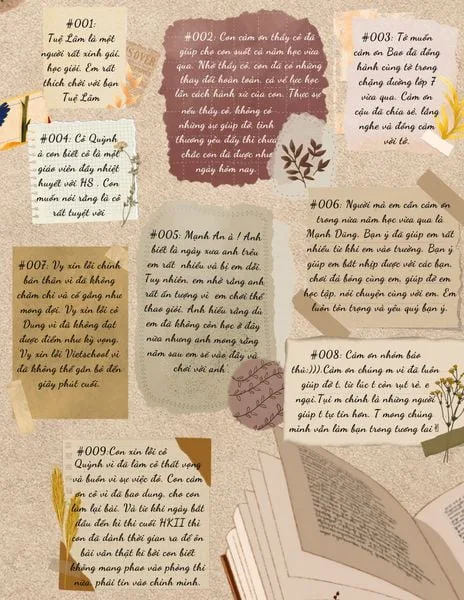 #001:
Tuệ Lâm là một
người rất xinh gái,
học giỏi. Em rất
thích chơi với bạn
Tuệ Lâm
#002: Con cảm ơn thầy cô đã
giúp cho con suốt cả năm học vừa
qua. Nhờ thầy cô, con đã có những
thay đổi hoàn toàn, cả về lực học
lẫn cách hành xử của con. Thực sự
nếu thầy cô, không có
những sự giúp đỡ, tình
thương yêu đấy thì chưa
chắc con đã được như
ngày hôm nay.
#003: Tớ muốn
cảm ơn Bao đã đồng
hành cùng tớ trong
chặng đường lớp 7
vừa qua. Cảm ơn
cậu đã chia sẻ, lắng
nghe và đồng cảm
với tớ.
#004: Cô Quỳnh
à con biết cô là một
giáo viên đầy nhiệt
huyết với HS . Con
muốn nói rằng là cô
rất tuyệt vời
#005: Mạnh An à ! Anh
biết là ngày xưa anh trêu
em rất nhiều và bị em dỗi.
Tuy nhiên, em nhớ rằng anh
rất ấn tượng vì em chơi thể
thao giỏi. Anh hiểu rằng dù
em đã không còn học ở đây
nữa nhưng anh mong rằng
năm sau em sẽ vào đây và
chơi với anh
#006: Người mà em cần cảm ơn
trong nửa năm học vừa qua là
Mạnh Dũng. Bạn ý đã giúp em rất
nhiều từ khi em vào trường. Bạn ý
giúp em bắt nhịp được với các bạn,
chơi đá bóng cùng em, giúp đỡ em
học tập, nói chuyện cùng với em. Em
luôn tôn trọng và yêu quý bạn ý.
#007: Vy xin lỗi chính
bản thân vì đã không
chăm chỉ và cố gắng như
mong đợi. Vy xin lỗi cô
Dung vì đã không đạt
được điểm như kỳ vọng.
Vy xin lỗi Vietschool vì
đã không thể gắn bó đến
giây phút cuối.
#008: Cảm ơn nhóm báo
thủ:))).Cảm ơn chúng m vì đã luôn
giúp đỡ t, từ lúc t còn rụt rè, e
ngại.Tụi m chính là những người
giúp t tự tin hơn. T mong chúng
mình vẫn làm bạn trong tương lai
#009:Con xin lỗi cô
Quỳnh vì đã làm cô thất vọng
và buồn vì sự việc đó. Con cảm
ơn cô vì đã bao dung, cho con
làm lại bài. Và từ khi ngày bắt
đầu đến kì thi cuối HKII thì
con đã dành thời gian ra để ôn
bài văn thật kĩ bởi con biết
không mang phao vào phòng thi
nữa, phải tin vào chính mình.